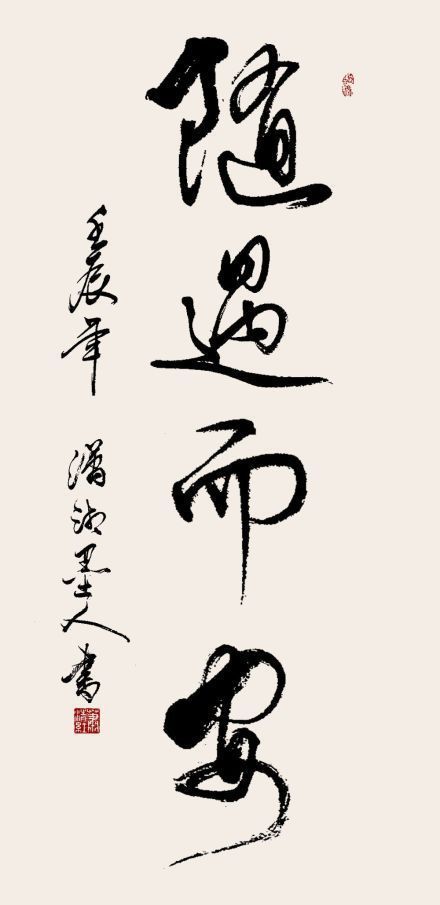 随遇而安
壬辰年 瀟湘墨人書